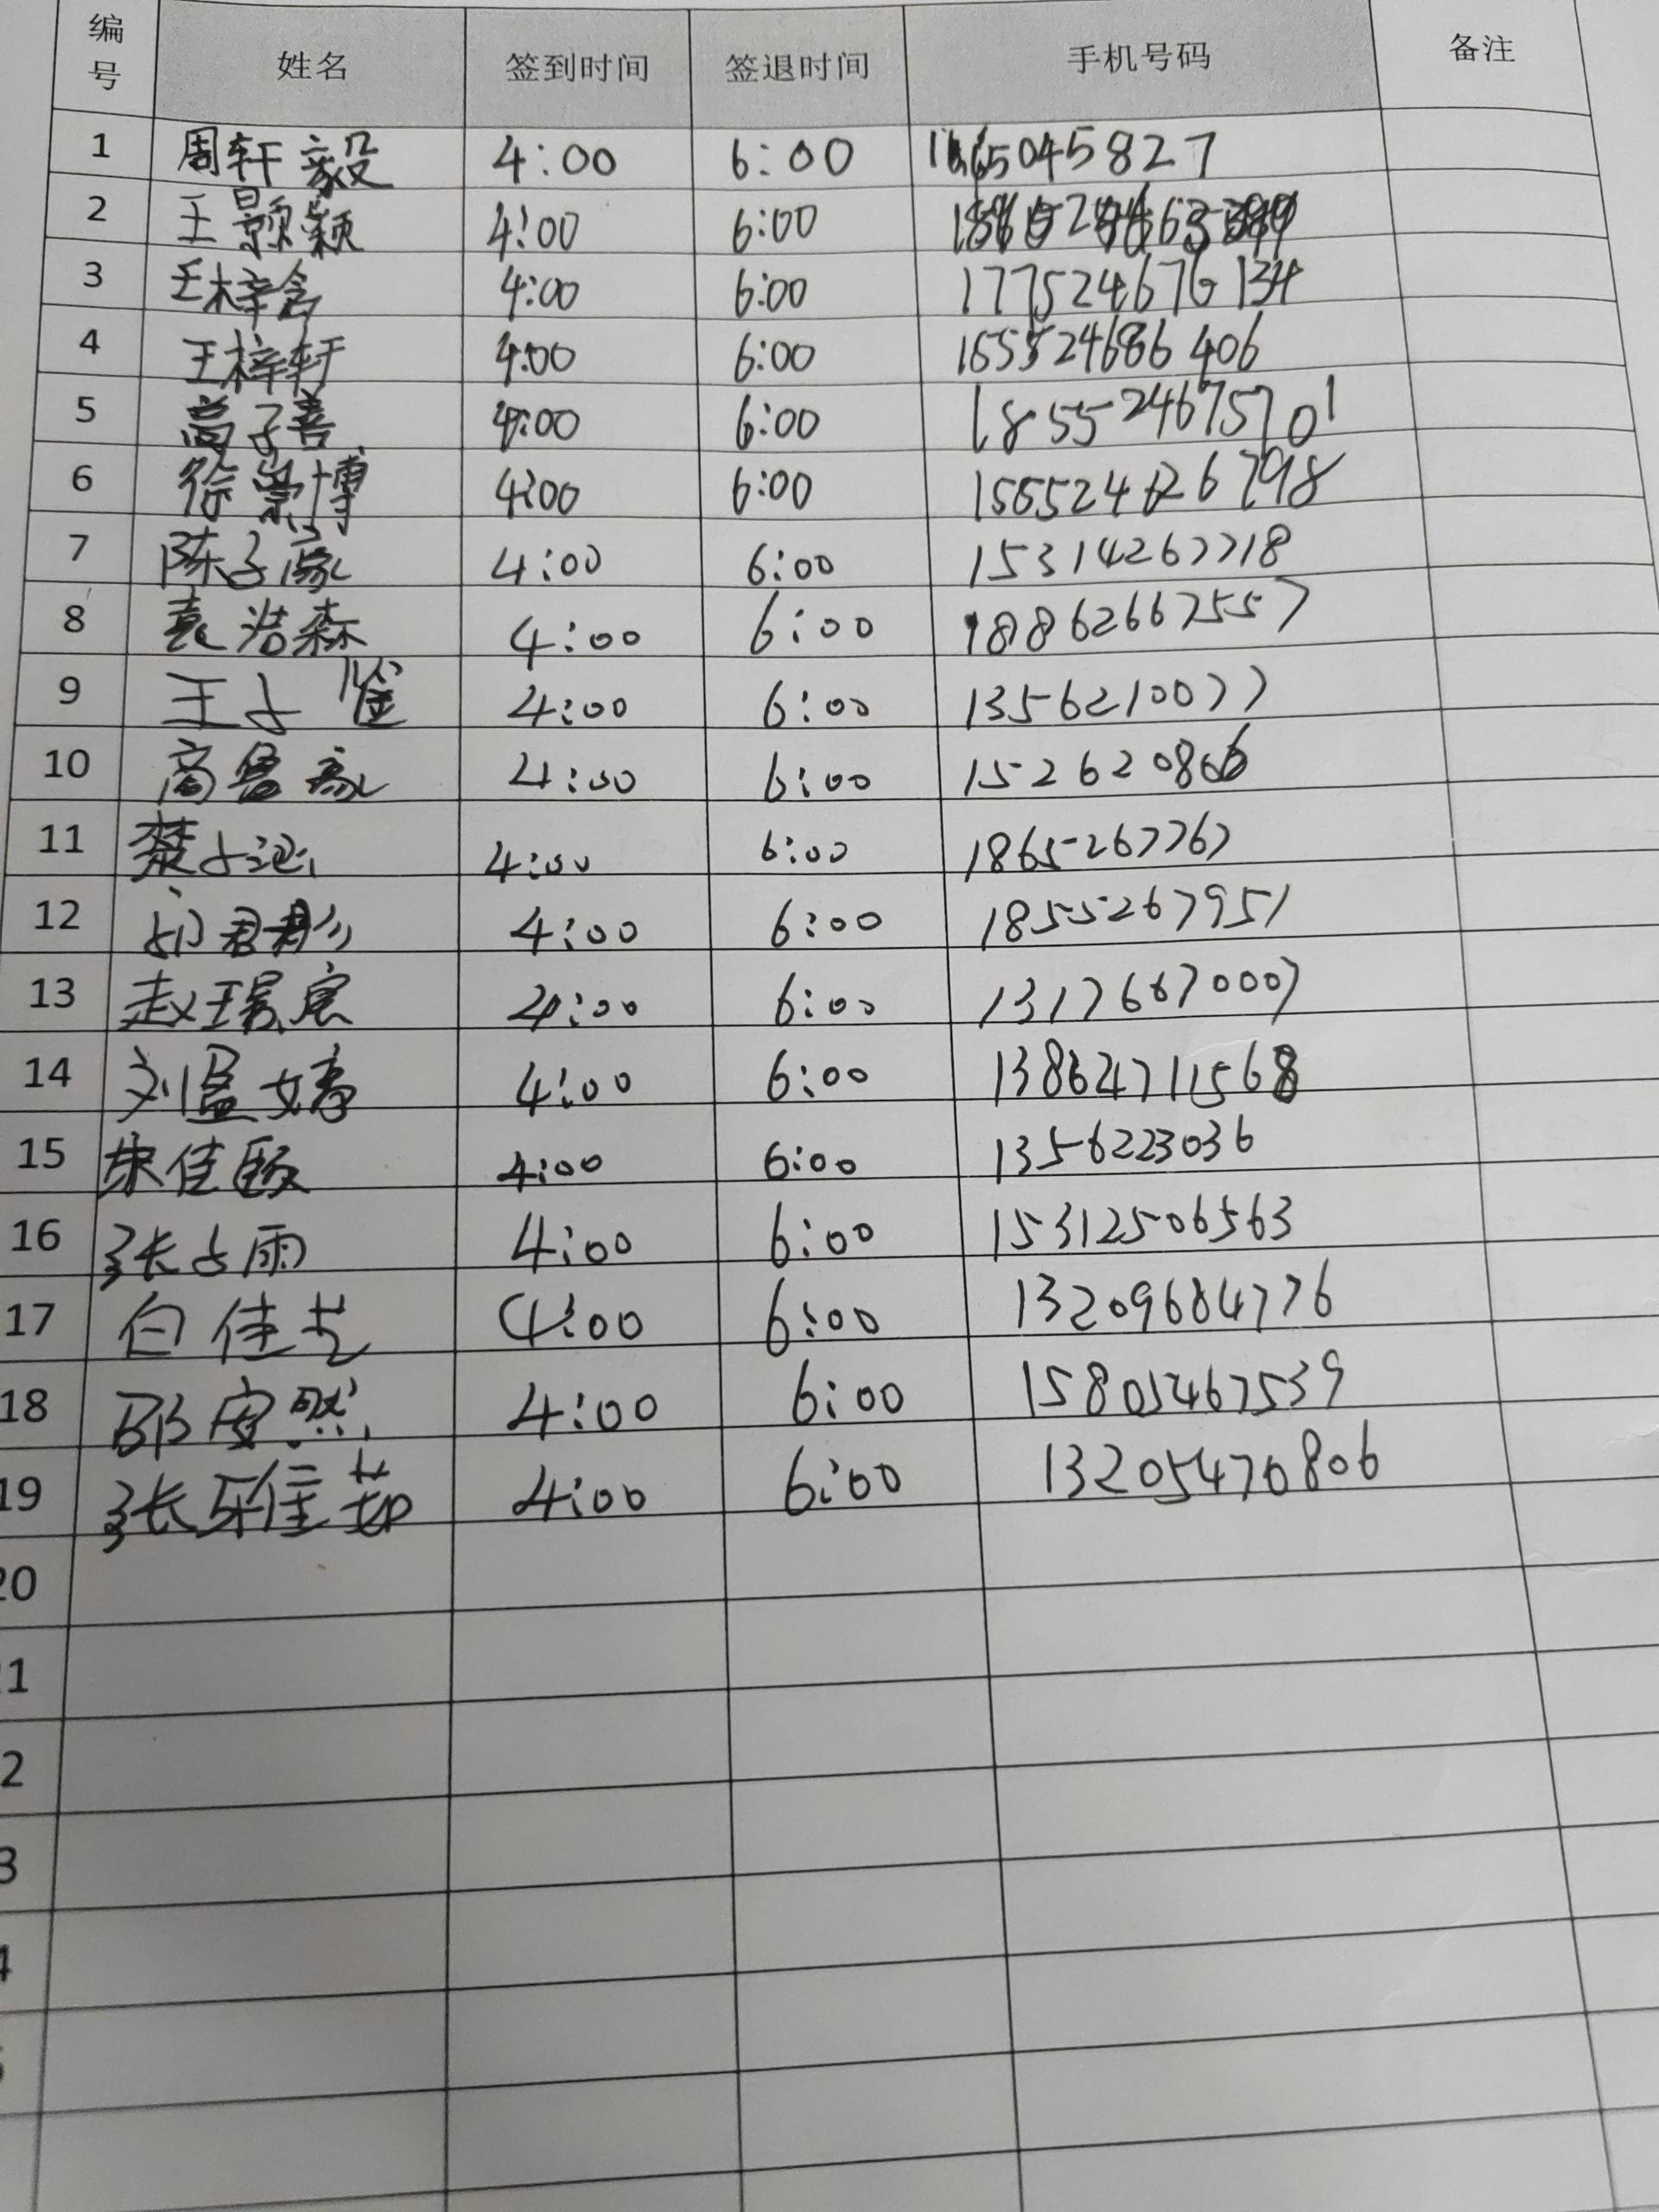 编号 姓名 签到时间 签退时间 手机号码 备注
1 周轩毅 4:00 6:00
2 王颢颖 4:00 6:00
3 王梓含 4:00 6:00 177524676134
4 王梓轩 4:00 6:00 165524686406
5 高子善 4:00 6:00 185524675701
6 徐崇博 4:00 6:00
7 陈子豪 4:00 6:00 15314267718
8 袁浩森 4:00 6:00 18862667557
9 王子 4:00 6:00 1356210077
10 高鲁豪 4:00 6:00
11 楚子涵 4:00 6:00 1865267767
12 4:00 6:00 18555267951
13 赵璟宸 4:00 6:00 13176670007
14 刘温婧 4:00 6:00 13864711568
15 佳颐 4:00 6:00 1356223036
16 张子雨 4:00 6:00 15312506563
17 白佳艺 4:00 6:00 13209684776
18 邵安然 4:00 6:00 15805467539
19 张佳茹 4:00 6:00 13205470806